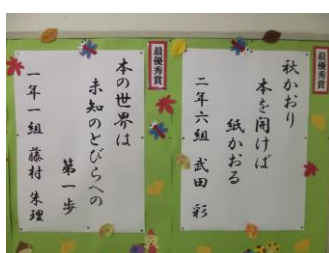 最優秀賞
秋かおり
本を開けば
紙かおる
二年六組 武田 彩
最優秀賞
本の世界は
未知のとびらへの
第一歩
一年一組 藤村 朱理